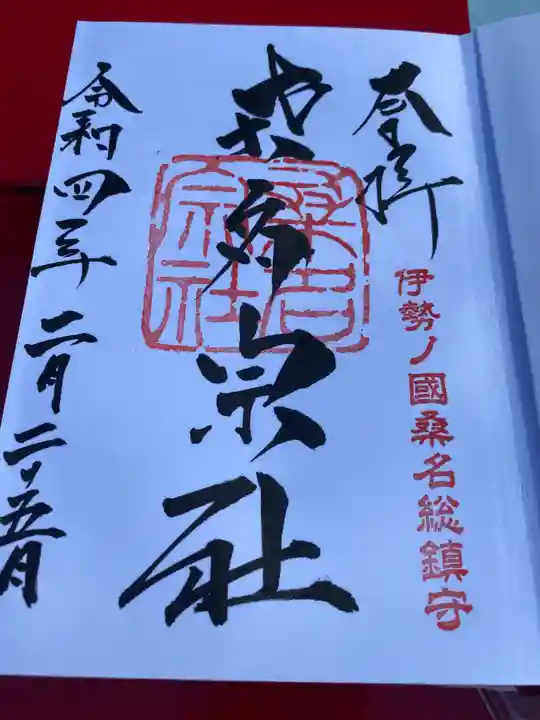 奉拝
伊勢ノ國桑名総鎮守
桑名宗社
桑名宗社
令和四年二月二十五日